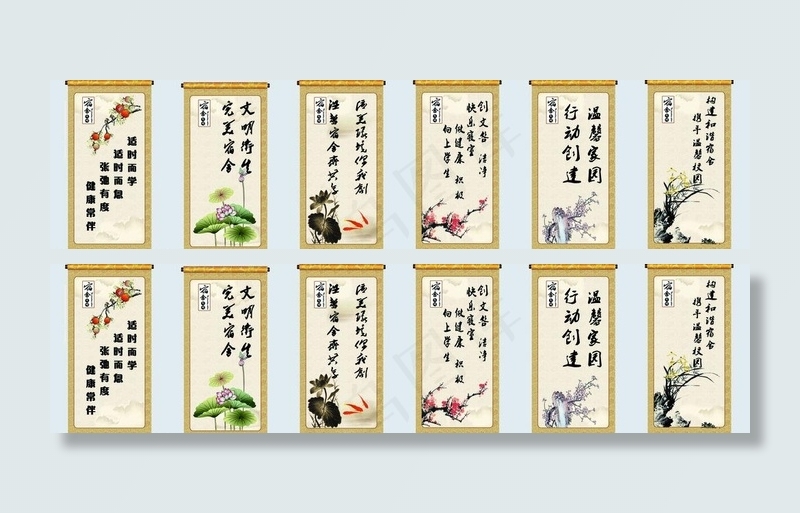 宿舍
适时而学
适时而息
张弛有度
健康常伴
宿舍
文明衛生
完美宿舍
宿舍
优美环境你我创
宿舍
创文明 洁净
快乐寝室
做健康 积极
向上学生
宿舍
温馨家园
行动创建
宿舍
构建和谐宿舍
携手温馨校园
宿舍
适时而学
适时而息
张弛有度
健康常伴
宿舍
文明衛生
完美宿舍
宿舍
优美环境你我创
宿舍
创文明 洁净
快乐寝室
做健康 积极
向上学生
宿舍
温馨家园
行动创建
宿舍
构建和谐宿舍
携手温馨校园